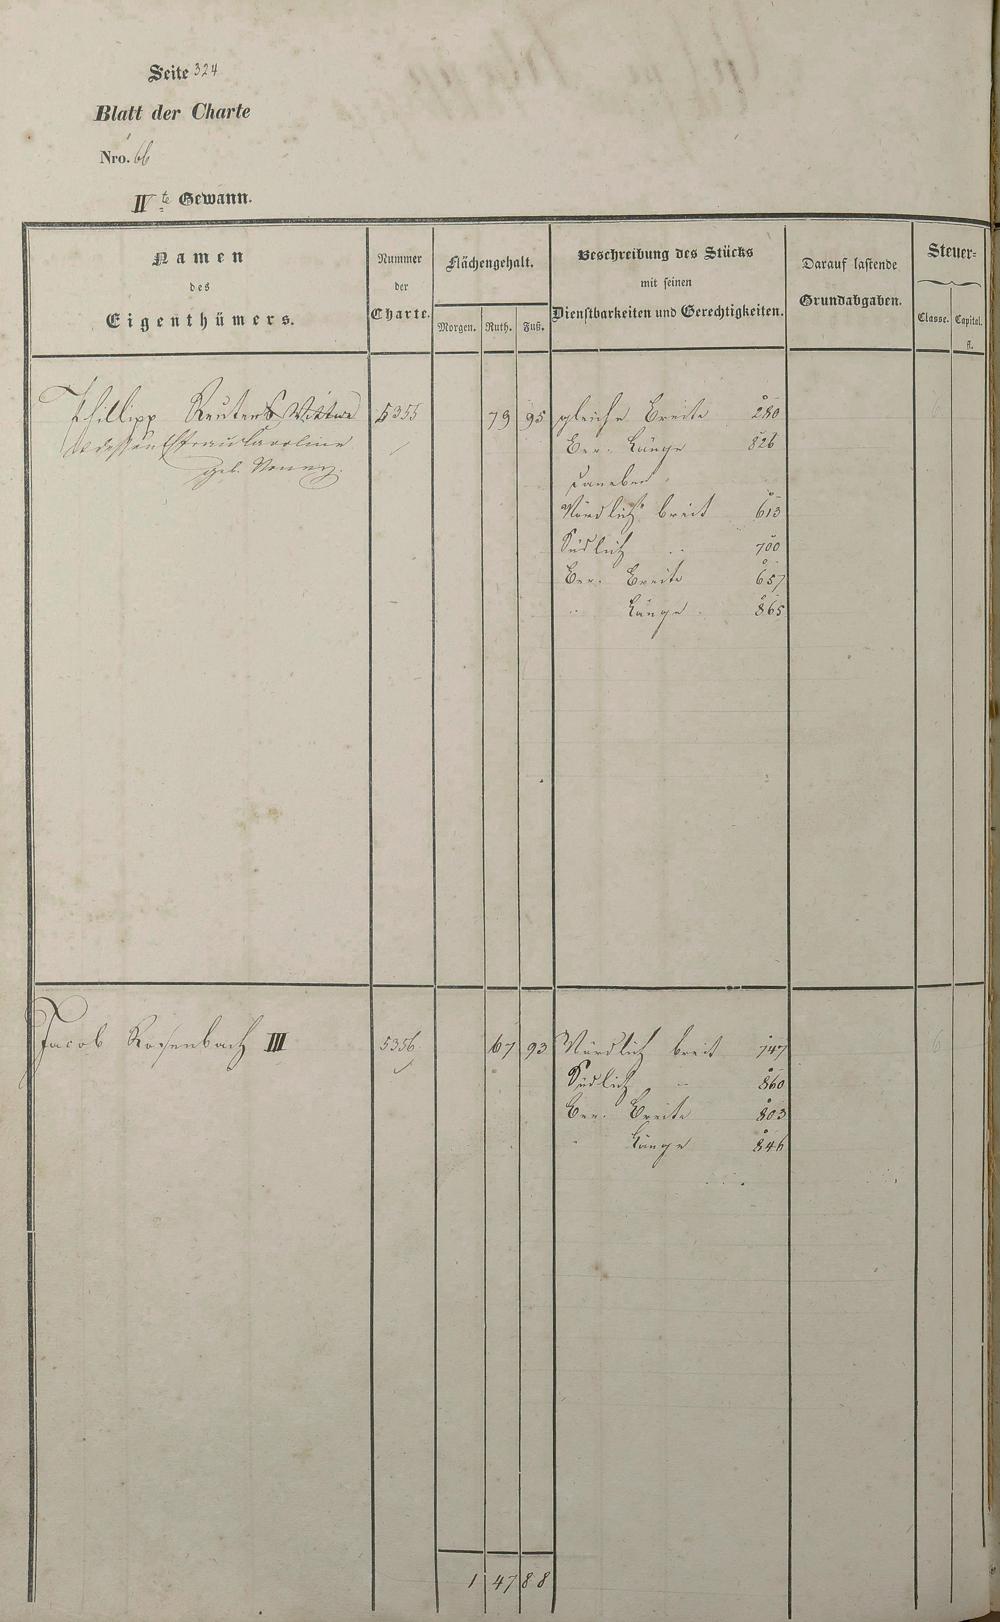 Seite 324
Blatt der Charte
Nro. 66
IVte Gewann.
Namen
des
Eigenthümers.
Nummer
der
Charte.
Flächengehalt.
Morgen. Ruth. Fuß.
Beschreibung des Stücks
mit seinen
Dienstbarkeiten und Gerechtigkeiten.
Darauf lastende
Grundabgaben.
Steuer-
Classe. Capital.
fl.
Phillipp Reuters Wittwe 5355 79 95 gleiche Breite 280
dessen Efrau Caroline Ber. Länge 826
geb.
daneben
Nördlich breit 613
Südlich " 700
Ber. Breite 657
" Länge 865
Jacob Rosenbach III 5356 67 93 Nördlich breit 747 6
Südlich " 860
Ber. Breite 803
" Länge 846
1 47 88